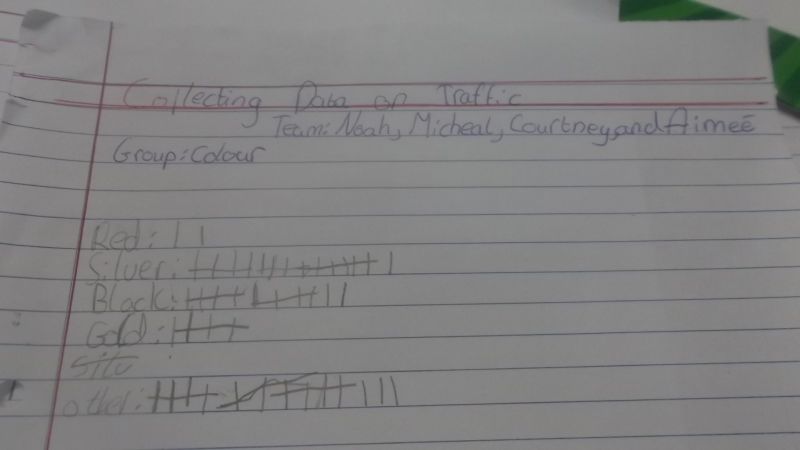 Collecting Data on Traffic
Team: Noah, Micheal, Courtney, and Aimeé
Group: Colour
Red: ||
Silver:
Black:
Gold:
other: